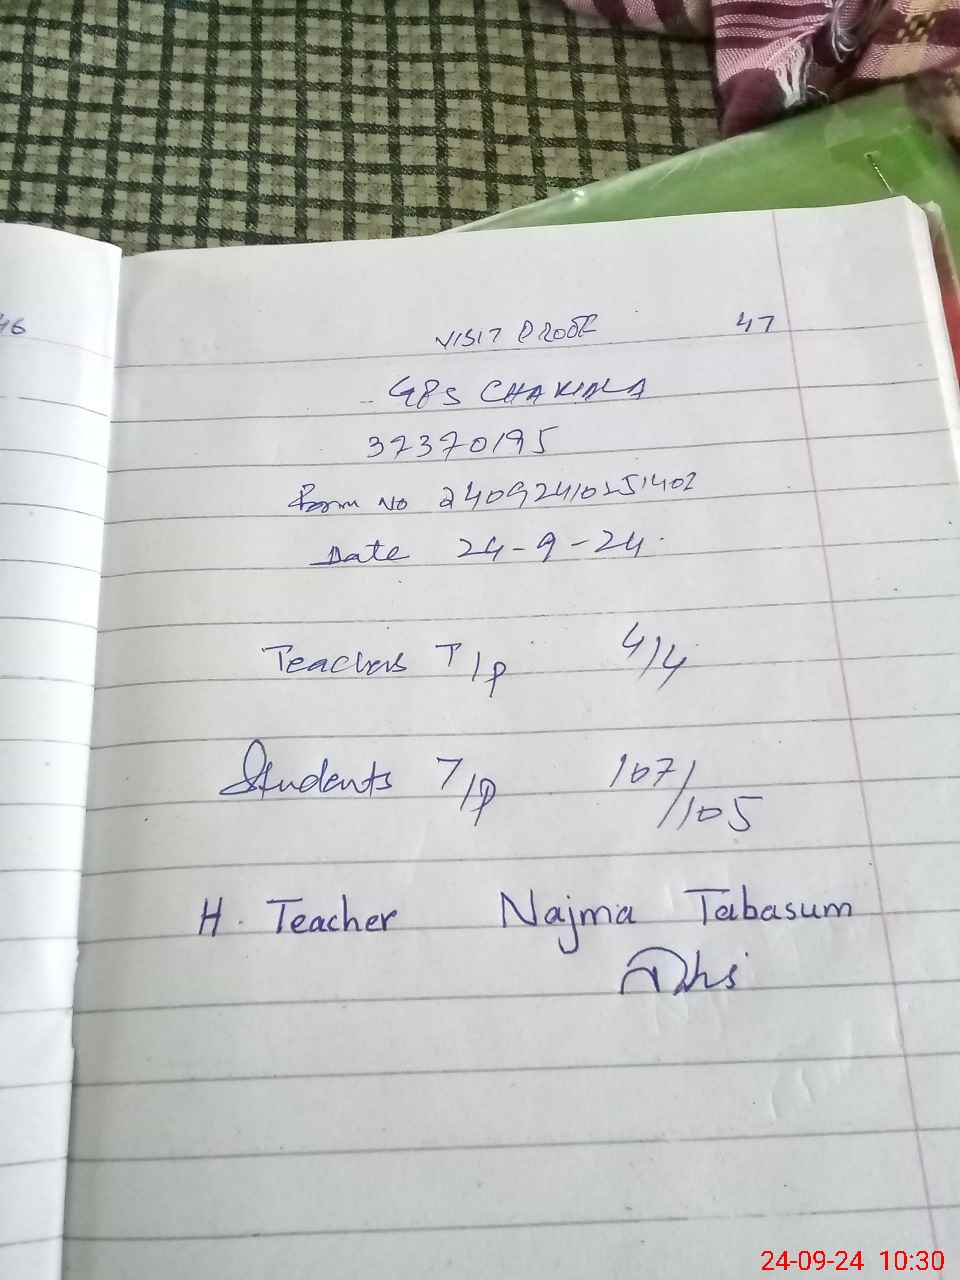 46
VISIT PROOF 47
GPS CHAKIALA
37370195
Form No 24092410251402
Date 24-9-24.
Teachers T/P 4/4
Students T/P 107/105
H. Teacher Najma Tabasum
24-09-24 10:30